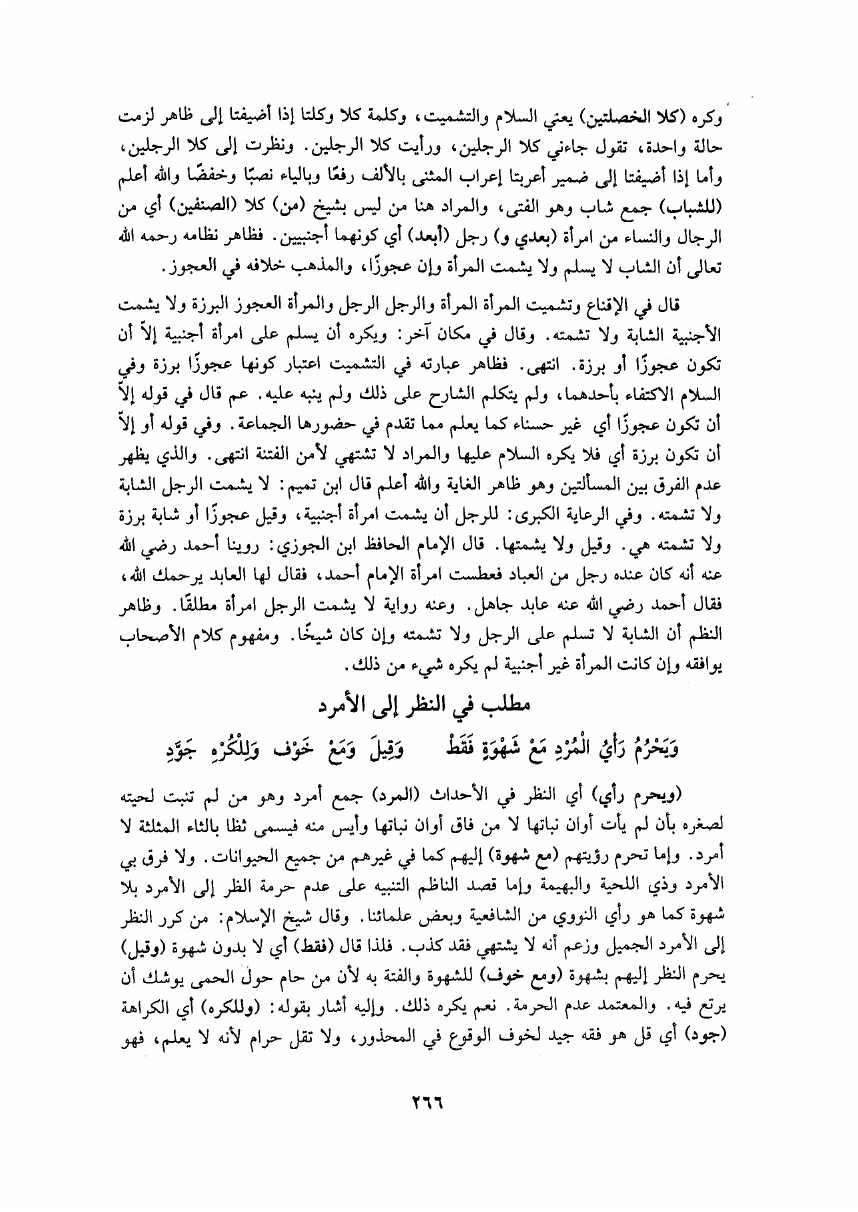 وكره (كلا الخصلتين) يعني السلام والتشميت، وكلمة كلا وكلتا إذا أضيفتا إلى ظاهر لزمت
حالة واحدة، تقول جاءني كلا الرجلين، ورأيت كلا الرجلين. ونظرت إلى كلا الرجلين،
وأما إذا أضيفتا إلى ضمير أعربتا إعراب المثنى بالألف رفعًا وبالياء نصبًا وخفضًا والله أعلم
(للشباب) جمع شاب وهو الفتى، والمراد هنا من ليس بشيخ (من) كلا (الصنفين) أي من
الرجال والنساء من امرأة (بعدي و) رجل (أبعد) أي كونهما أجنبيين. فظاهر نظامه رحمه الله
تعالى أن الشاب لا يسلم ولا يشمت المرأة وإن عجوزًا، والمذهب خلافه في العجوز.
قال في الإقناع وتشميت المرأة المرأة والرجل الرجل والمرأة العجوز البرزة ولا يشمت
الأجنبية الشابة ولا تشمته. وقال في مكان آخر: ويكره أن يسلم على امرأة أجنبية إلاّ أن
تكون عجوزًا أو برزة. انتهى. فظاهر عبارته في التشميت اعتبار كونها عجوزًا برزة وفي
السلام الاكتفاء بأحدهما، ولم يتكلم الشارح على ذلك ولم ينبه عليه. عم قال في قوله إلاّ
أن تكون عجوزًا أي غير حسناء كما يعلم مما تقدم في حضورها الجماعة. وفي قوله أو إلاّ
أن تكون برزة أي فلا يكره السلام عليها والمراد لا تشتهي لأمن الفتنة انتهى. والذي يظهر
عدم الفرق بين المسألتين وهو ظاهر الغاية والله أعلم قال ابن تميم: لا يشمت الرجل الشابة
ولا تشمته. وفي الرعاية الكبرى: للرجل أن يشمت امرأة أجنبية، وقيل عجوزًا أو شابة برزة
ولا تشمته هي. وقيل ولا يشمتها. قال الإمام الحافظ ابن الجوزي: روينا أحمد رضي الله
عنه أنه كان عنده رجل من العباد فعطست امرأة الإمام أحمد، فقال لها العابد يرحمك الله،
فقال أحمد رضي الله عنه عابد جاهل. وعنه رواية لا يشمت الرجل امرأة مطلقًا. وظاهر
النظم أن الشابة لا تسلم على الرجل ولا تشمته وإن كان شيخًا. ومفهوم كلام الأصحاب
يوافقه وإن كانت المرأة غير أجنبية لم يكره شيء من ذلك.
مطلب في النظر إلى الأمرد
وَيَحْرُمُ رَأْيُ الْمُرْدِ مَعْ شَهْوَةٍ فَقَطْ وَقِيلَ وَمَعْ خَوْف وَلِلْكُرْهِ جَوِّدِ
(ويحرم رأي) أي النظر في الأحداث (المرد) جمع أمرد وهو من لم تنبت لحيته
لصغره بأن لم يأت أوان نباتها لا من فاق أوان نباتها وأيس منه فيسمى ثظا بالثاء المثلثة لا
أمرد. وإما تحرم رؤيتهم (مع شهوة) إليهم كما في غيرهم من جميع الحيوانات. ولا فرق بي
الأمرد وذي اللحية والبهيمة وإما قصد الناظم التنبيه على عدم حرمة الظر إلى الأمرد بلا
شهوة كما هو رأي النووي من الشافعية وبعض علمائنا. وقال شيخ الإسلام: من كرر النظر
إلى الأمرد الجميل وزعم أنه لا يشتهي فقد كذب. فلذا قال (فقط) أي لا بدون شهوة (وقيل)
يحرم النظر إليهم بشهوة (ومع خوف) للشهوة والفتة به لأن من حام حول الحمى يوشك أن
يرتع فيه. والمعتمد عدم الحرمة. نعم يكره ذلك. وإليه أشار بقوله: (وللكره) أي الكراهة
(جود) أي قل هو فقه جيد لخوف الوقوع في المحذور، ولا تقل حرام لأنه لا يعلم، فهو
٢٦٦